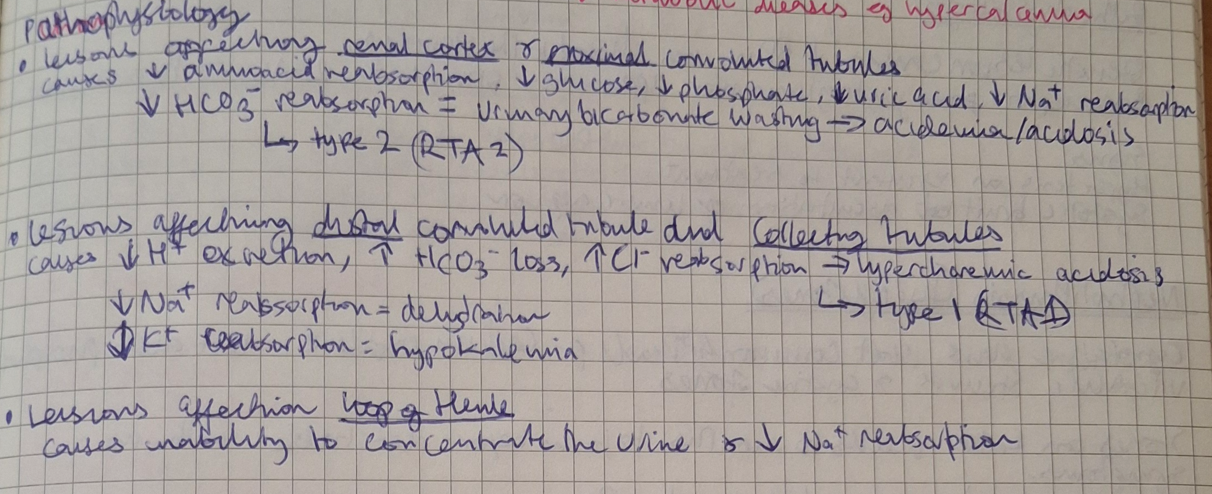 metabolic diseases eg hypercalcemia
Pathophysiology
• lesions affecting renal cortex & proximal convoluted tubules
causes ↓ aminoacid reabsorption, ↓ glucose, ↓ phosphate, ↓ uric acid, ↓ Na⁺ reabsorption
↓ HCO₃⁻ reabsorption = urinary bicarbonate wasting → acidemia/acidosis
↳ type 2 (RTA 2)
• Lesions affecting distal convoluted tubule and collecting tubules
causes ↓ H⁺ excretion, ↑ HCO₃⁻ loss, ↑ Cl⁻ reabsorption → hyperchloremic acidosis
↳ type 1 RTA1
↓ Na⁺ reabsorption = dehydration
↓ K⁺ reabsorption = hypokalemia
• Lessions affection loop of Henle
causes inability to concentrate the urine & ↓ Na⁺ reabsorption